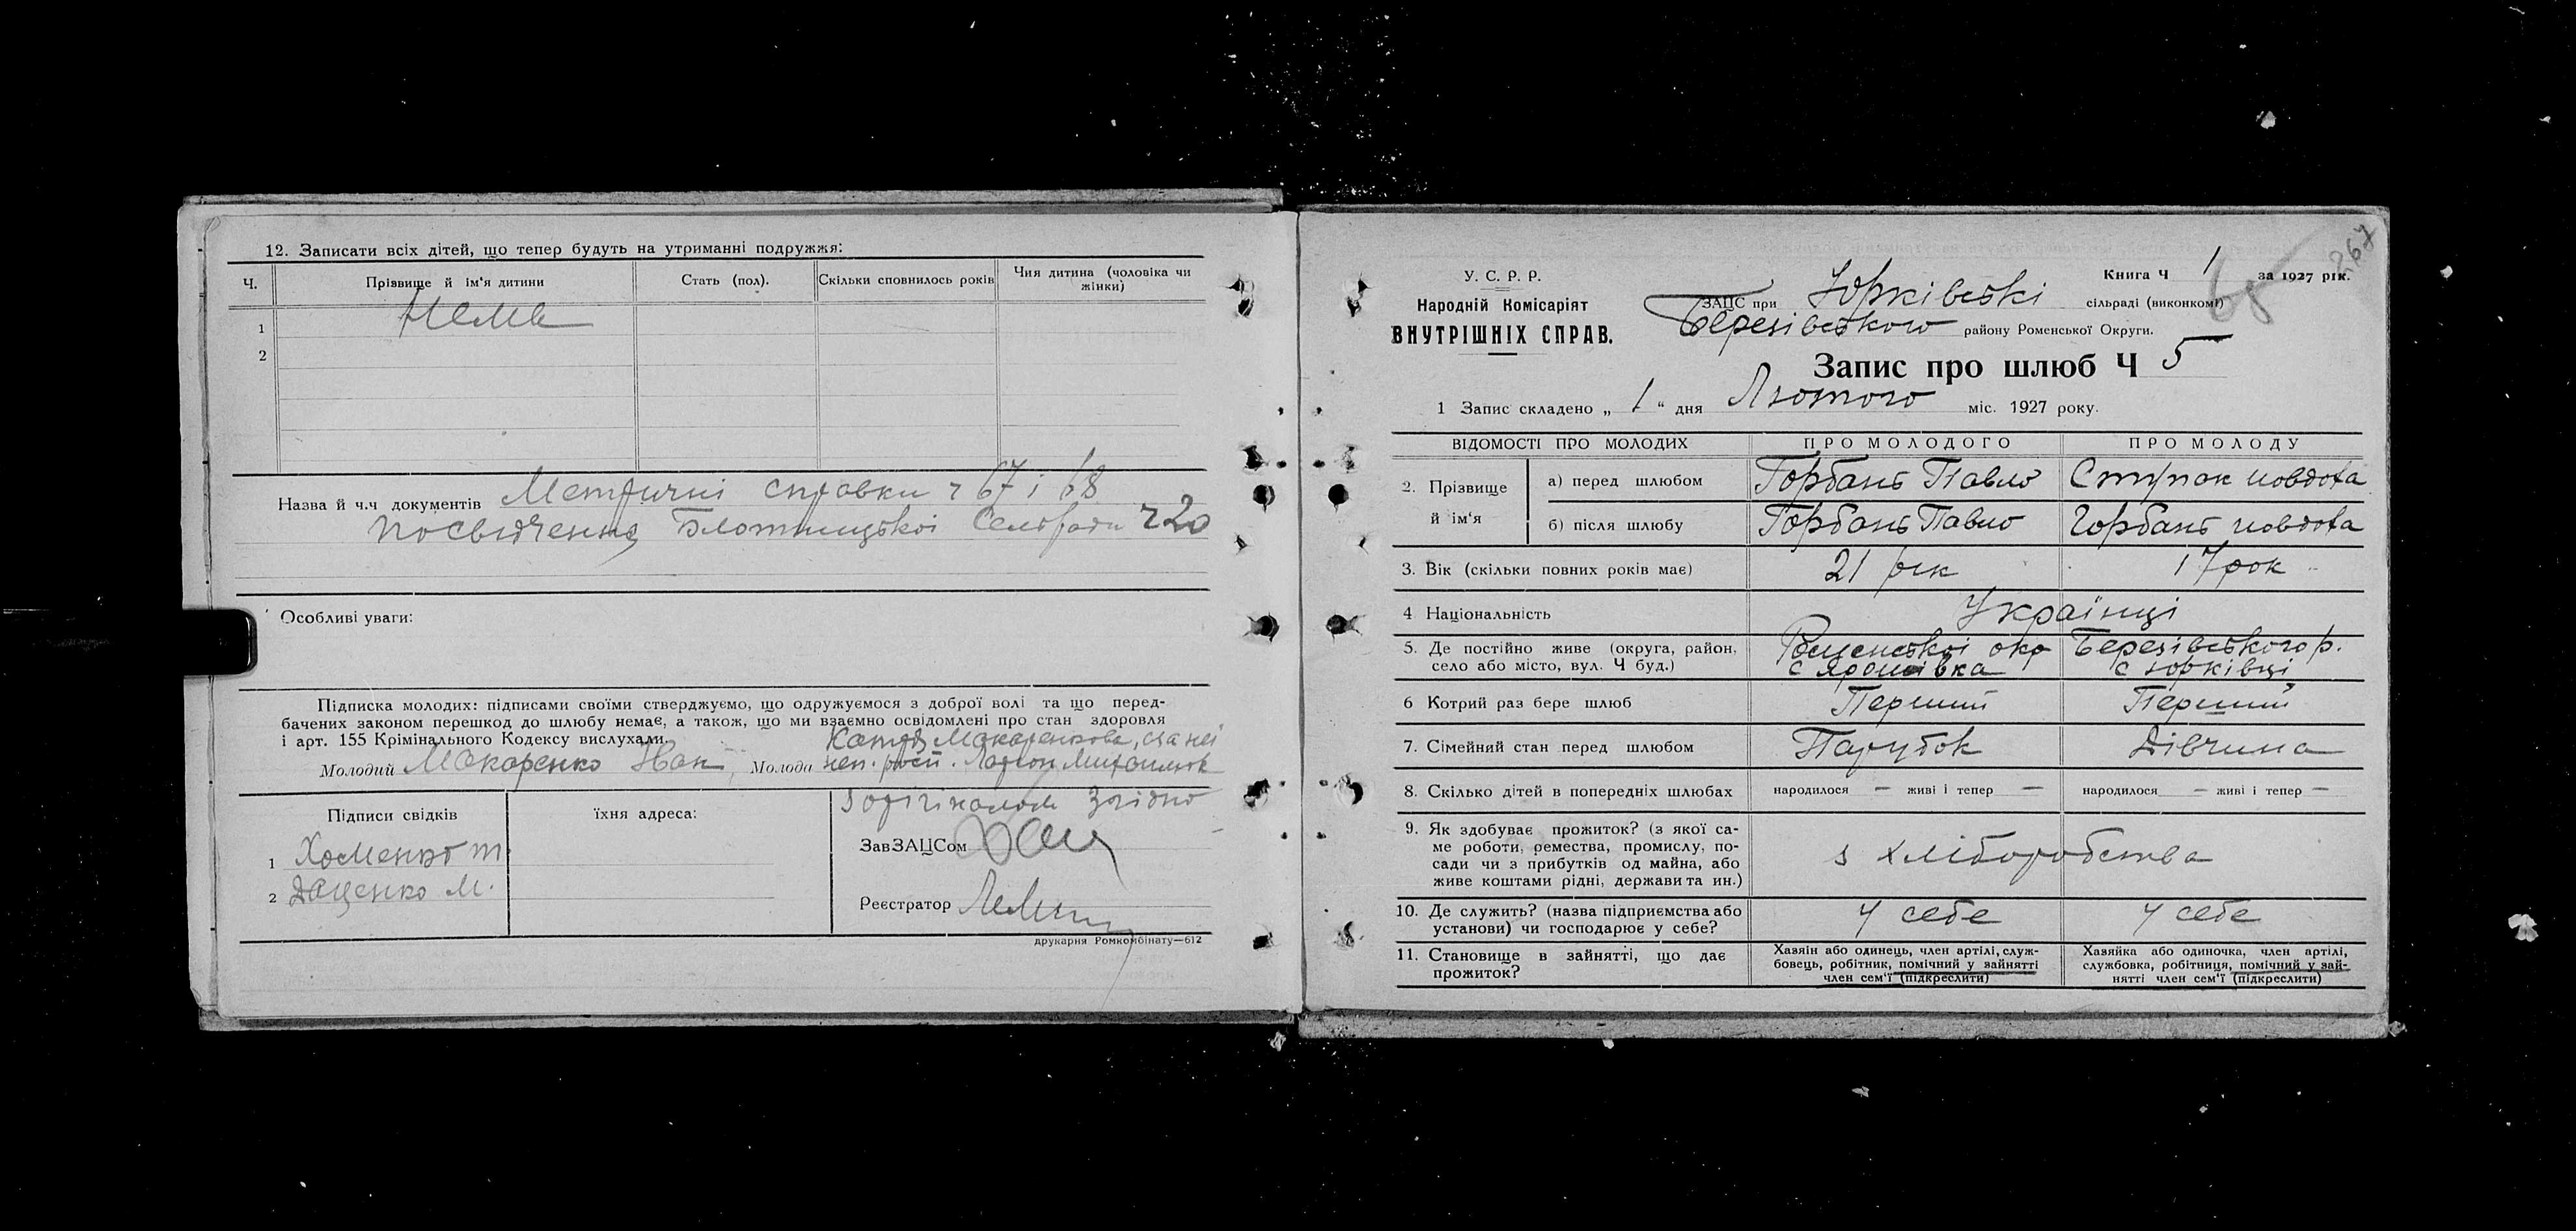 12. Записати всіх дітей, що тепер будуть на утриманні подружжя:
Ч. Прізвище й ім'я дитини Стать (пол). Скільки сповнилось років Чия дитина (чоловіка чи жінки)
1 Нема
2
Назва й ч.ч документів Метричні справки ч 67 і 68
посвідчення Блотницької Сельради ч 20
Особливі уваги:
Підписка молодих: підписами своїми стверджуємо, що одружуємося з доброї волі та що перед-
бачених законом перешкод до шлюбу немає, а також, що ми взаємно освідомлені про стан здоровля
і арт. 155 Крімінального Кодексу вислухали.
Молодий Макаренко Іван, Молода Макаренкова, за неї
неп. росп.
Підписи свідків їхня адреса: З оригіналом Згідно
1 Хоменко т
2 Даценко М.
ЗавЗАЦСом
Реєстратор
друкарня Ромкомбінату—612
267
У. С. Р. Р.
Народній Комісаріят
ВНУТРІШНІХ СПРАВ.
Книга Ч 1 за 1927 рік.
65
ЗАЦС при Юрківські сільраді (виконкомі)
Березівського району Роменської Округи.
Запис про шлюб Ч 5
1 Запис складено „ 1 “ дня Лютого міс. 1927 року.
ВІДОМОСТІ ПРО МОЛОДИХ ПРО МОЛОДОГО ПРО МОЛОДУ
2. Прізвище й ім'я а) перед шлюбом Горбань Павло Ступак Иовдоха
б) після шлюбу Горбань Павло Горбань Иовдоха
3. Вік (скільки повних років має) 21 рік 17 рок
4 Національність Українці
5. Де постійно живе (округа, район, село або місто, вул. Ч буд.) Роменської окр с Ярошівка Березівського р. с Юрківці
6 Котрий раз бере шлюб Перший Перший
7. Сімейний стан перед шлюбом Парубок Дівчина
8. Скілько дітей в попередніх шлюбах народилося — живі і тепер — народилося — живі і тепер —
9. Як здобуває прожиток? (з якої са-
ме роботи, ремества, промислу, по-
сади чи з прибутків од майна, або
живе коштами рідні, держави та ин.)
з хліборобства
10. Де служить? (назва підприємства або
установи) чи господарює у себе?
У себе У себе
11. Становище в зайнятті, що дає
прожиток?
Хазяін або одинець, член артілі, служ-
бовець, робітник, помічний у зайнятті
член сем'ї (підкреслити)
Хазяйка або одиночка, член артілі,
службовка, робітниця, помічний у зай-
нятті член сем'ї (підкреслити)